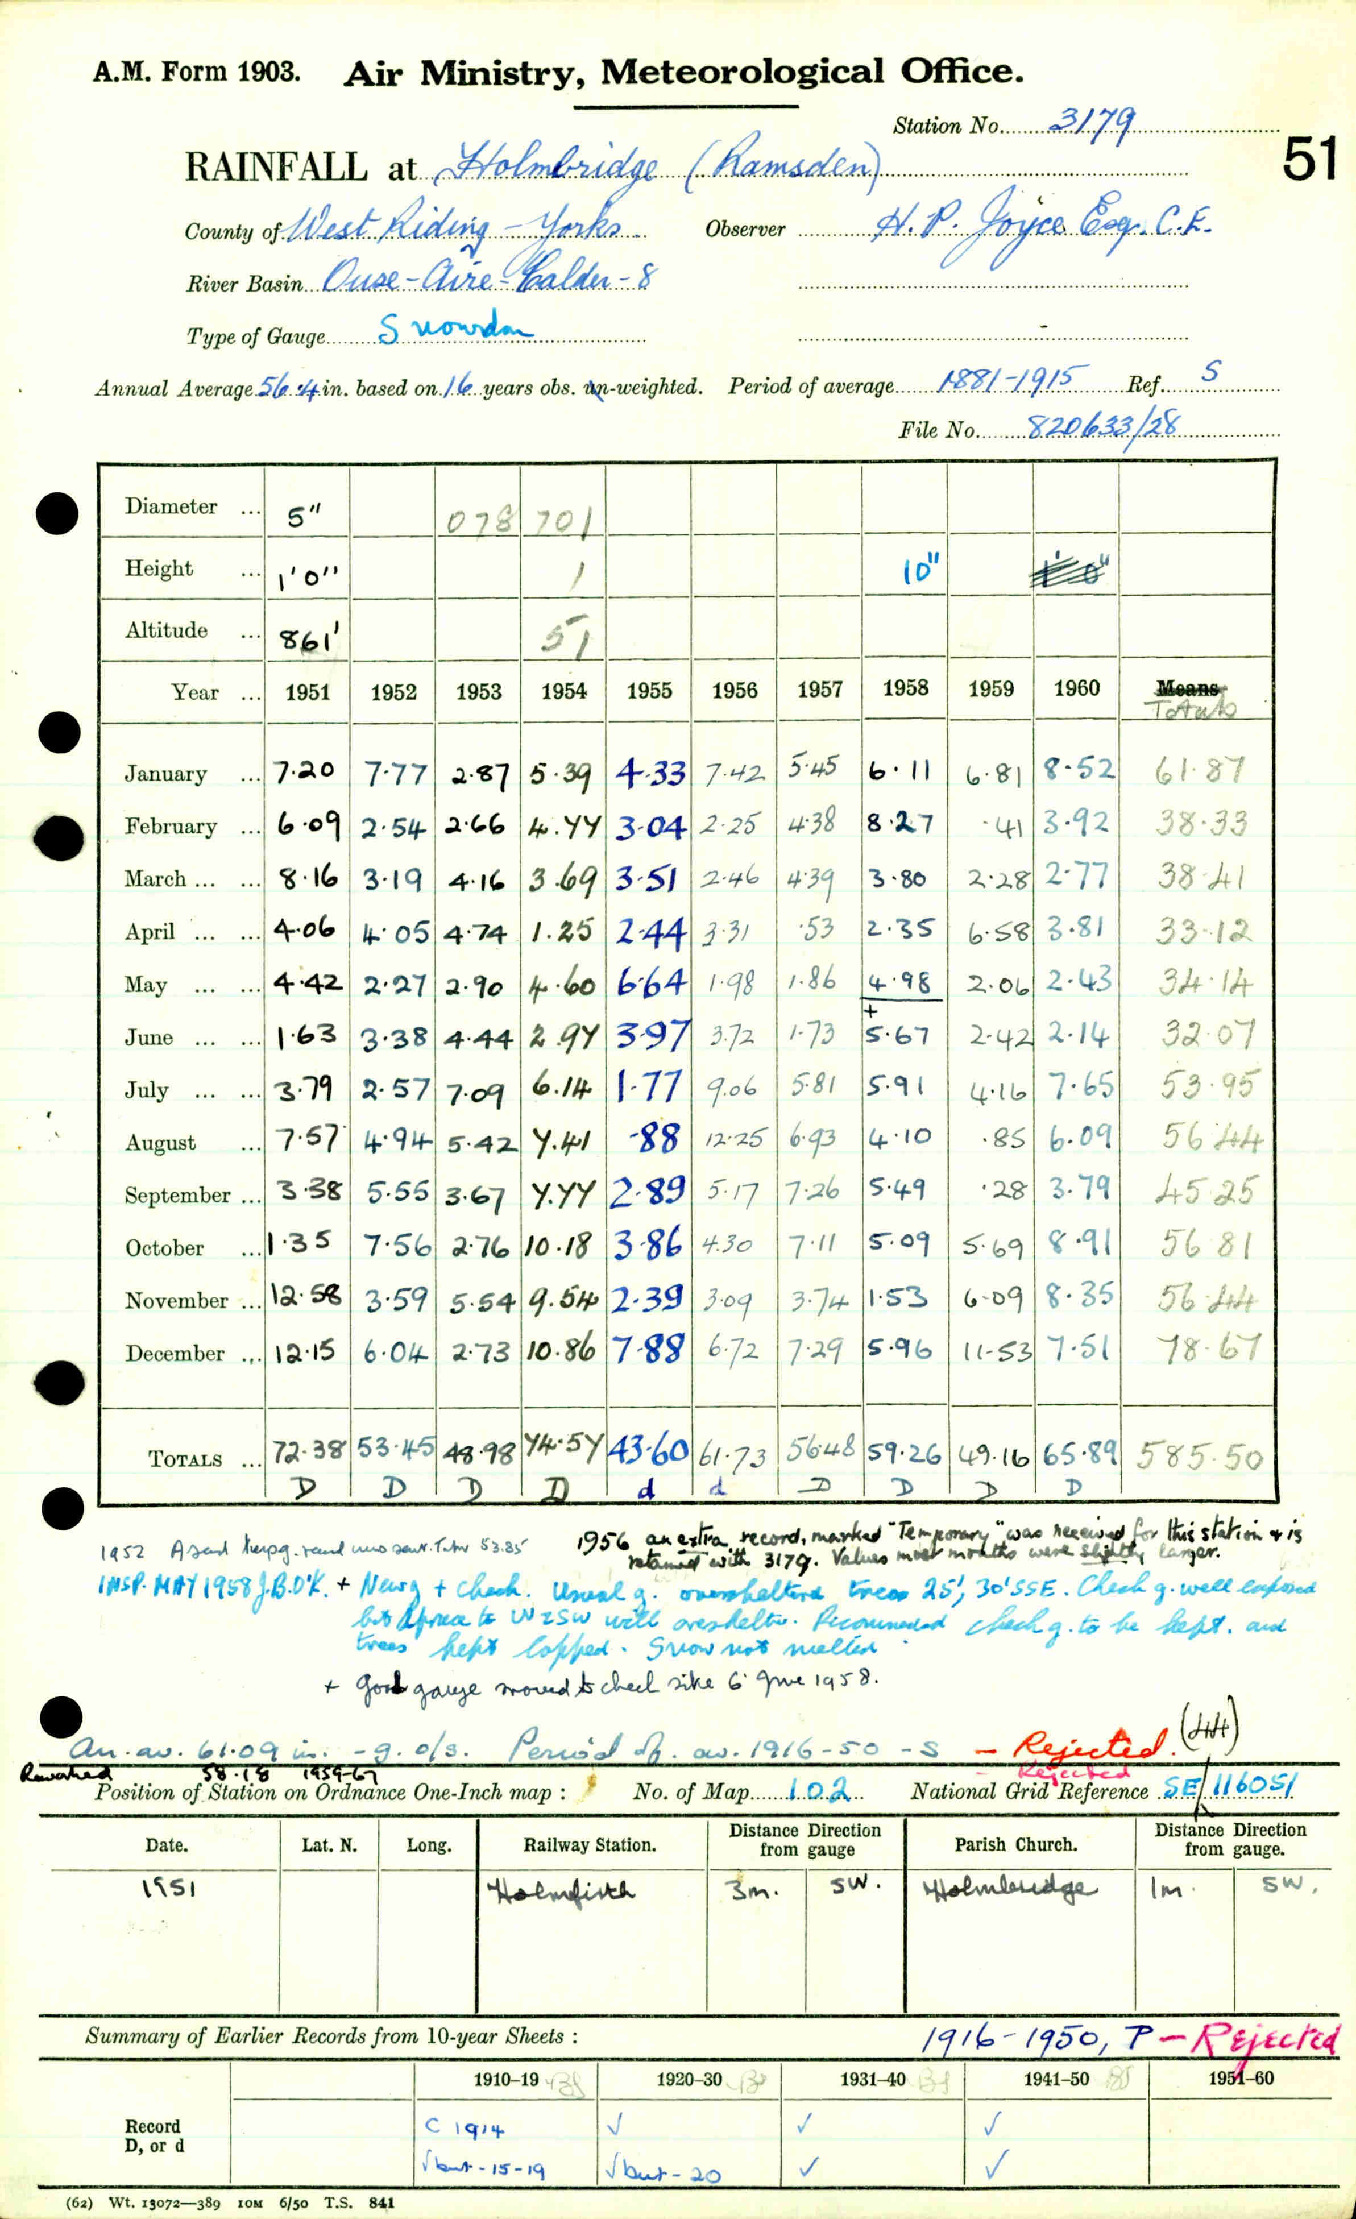 A.M. Form 1903. Air Ministry, Meteorological Office.
Station No. 3179
51
RAINFALL at Holmbridge (Ramsden)
County of West Riding - Yorks Observer H. P. Joyce Esq. C.E.
River Basin Ouse - Aire - Calder - 8
Type of Gauge Snowdon
Annual Average 56.4 in. based on 16 years obs. un-weighted. Period of average 1881-1915 Ref. S
File No. 820633/28
Diameter ... 5" 078 701
Height ... 1'0" 1 10" 1'0"
Altitude ... 861' 51
Year ... 1951 1952 1953 1954 1955 1956 1957 1958 1959 1960 Means Totals
January ... 7.20 7.77 2.87 5.39 4.33 7.42 5.45 6.11 6.81 8.52 61.87
February ... 6.09 2.54 2.66 4.77 3.04 2.25 4.38 8.27 .41 3.92 38.33
March ... ... 8.16 3.19 4.16 3.69 3.51 2.46 4.39 3.80 2.28 2.77 38.41
April ... ... 4.06 4.05 4.74 1.25 2.44 3.31 .53 2.35 6.58 3.81 33.12
May ... ... 4.42 2.27 2.90 4.60 6.64 1.98 1.86 4.98 2.06 2.43 34.14
June ... ... 1.63 3.38 4.44 2.97 3.97 3.72 1.73 +5.67 2.42 2.14 32.07
July ... ... 3.79 2.57 7.09 6.14 1.77 9.06 5.81 5.91 4.16 7.65 53.95
August ... 7.57 4.94 5.42 7.41 .88 12.25 6.93 4.10 .85 6.09 56.44
September ... 3.38 5.55 3.67 7.77 2.89 5.17 7.26 5.49 .28 3.79 45.25
October ... 1.35 7.56 2.76 10.18 3.86 4.30 7.11 5.09 5.69 8.91 56.81
November ... 12.58 3.59 5.54 9.54 2.39 3.09 3.74 1.53 6.09 8.35 56.44
December ... 12.15 6.04 2.73 10.86 7.88 6.72 7.29 5.96 11.53 7.51 78.67
TOTALS ... 72.38 53.45 48.98 74.57 43.60 61.73 56.48 59.26 49.16 65.89 585.50
D D D D d d D D D D
1952 A 53.85
1956 an extra record, marked "Temporary" was received for this station & is
retained with 3179. Values most months were slightly larger.
INSP. MAY 1958 J.B.O'K. + New g + check. Usual g. oversheltered trees 25', 30' SSE. Check g. well exposed
but to W & SW will Recommended check g. to be kept. and
trees kept lopped. Snow not melted
+ Good gauge moved to check site 6 June 1958.
An. av. 61.09 in. - g. o/s. Period of av. 1916-50 - S - Rejected. (44)
Reworked 58.18 1959-67 - Rejected
Position of Station on Ordnance One-Inch map : No. of Map 102 National Grid Reference SE/116051
Date. Lat. N. Long. Railway Station. Distance Direction from gauge Parish Church. Distance Direction from gauge.
1951 Holmfirth 3m. SW. Holmbridge 1m. SW.
Summary of Earlier Records from 10-year Sheets : 1916-1950, P - Rejected
1910–19 1920–30 1931–40 1941–50 1951–60
Record C 1914 ✓ ✓ ✓
D, or d ✓but-15-19 ✓but-20 ✓ ✓
(62) Wt. 13072—389 10M 6/50 T.S. 841